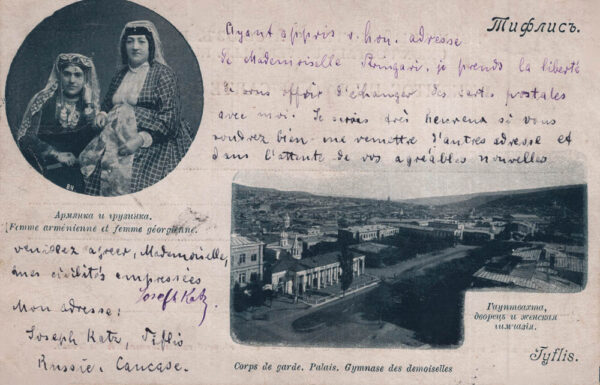 Тифлисъ.
Ayant appris v. hon. adresse
de Mademoiselle je prends la liberté
de vous offrir d'échanger des cartes postales
avec moi. Je serais très heureux si vous
voudrez bien me remettre d'autres adresse et
dans l'attente de vos agréables nouvelles
Армянка и грузинка.
Femme arménienne et femme géorgienne.
veuillez agréer, Mademoiselle,
mes civilités empressées
Joseph Katz
Mon adresse:
Joseph Katz, Tiflis
Russie. Caucase.
Гауптвахта,
дворецъ и женская
гимназія.
Corps de garde. Palais. Gymnase des demoiselles
Tyflis.